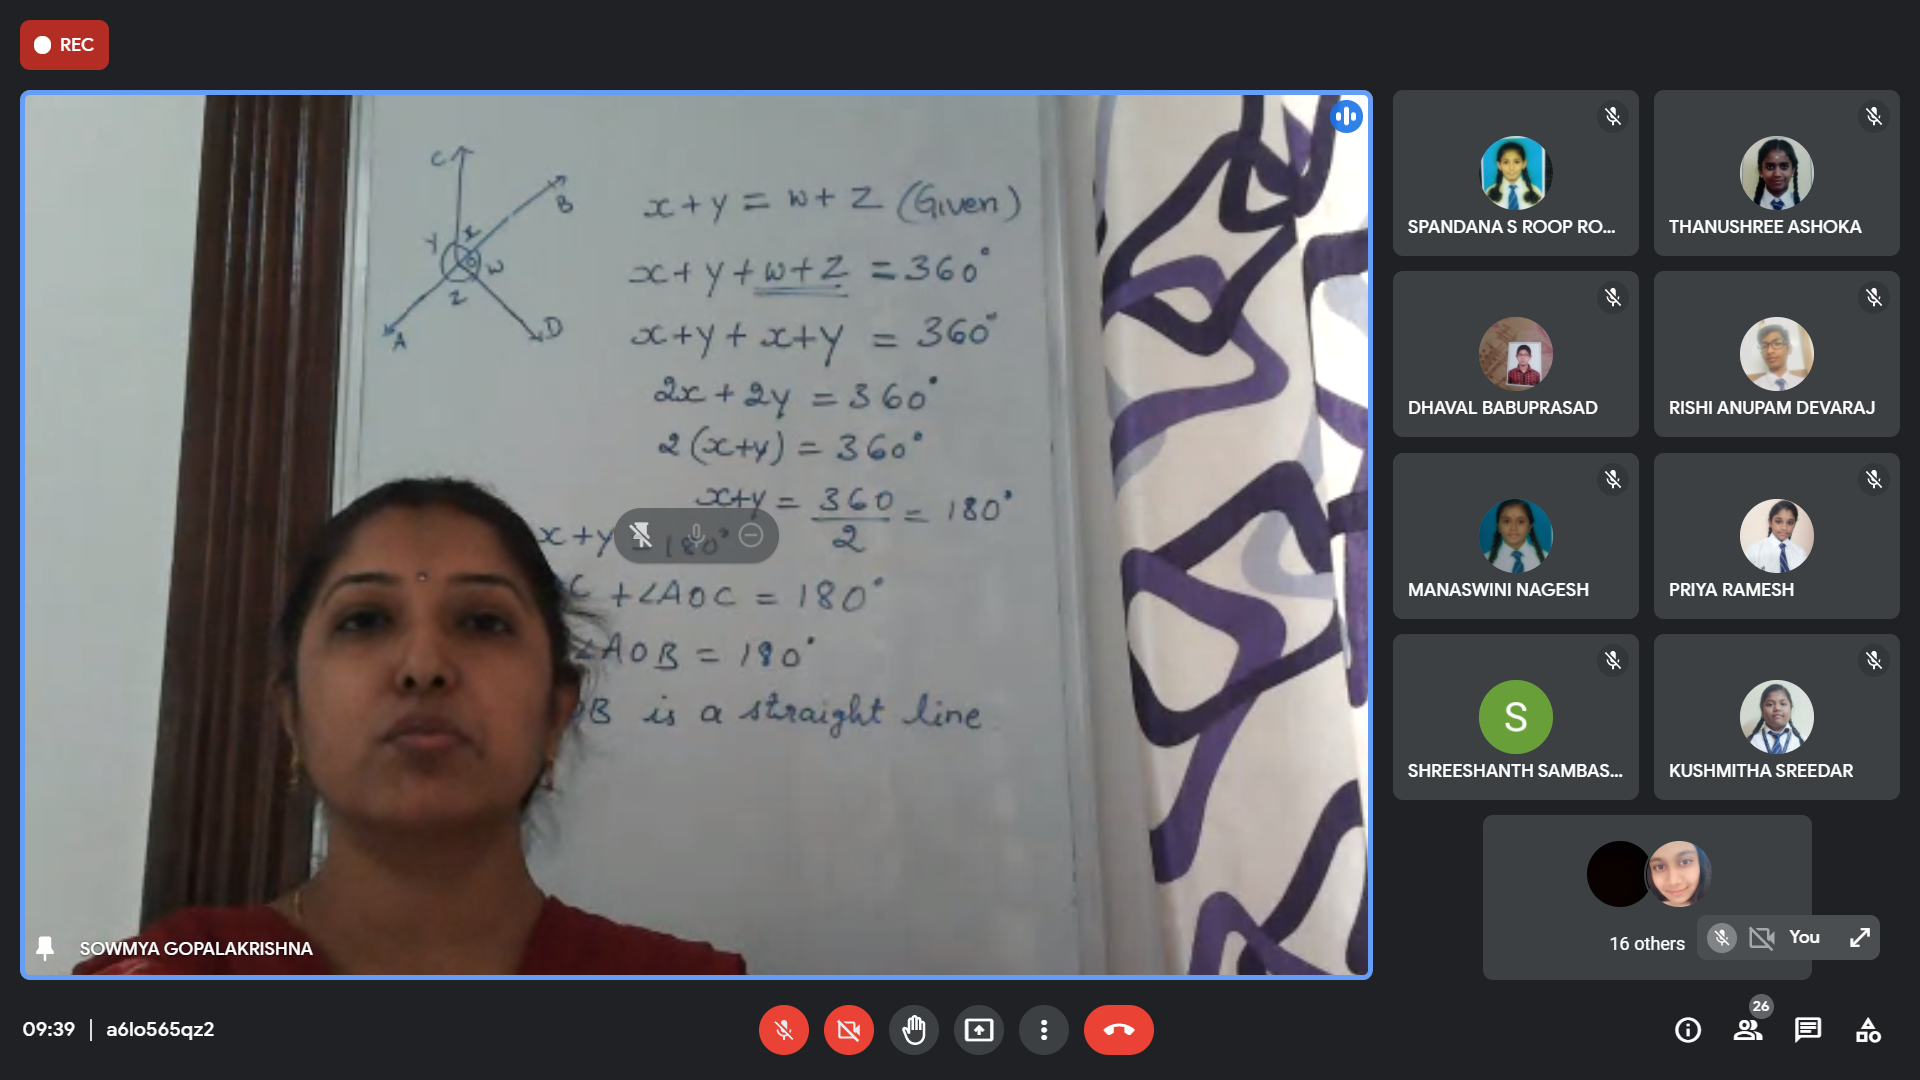 REC
C
B
Y x
O W
Z
A
D
x+y = w+z (Given)
x+y+w+z = 360°
x+y+x+y = 360°
2x+2y = 360°
2(x+y) = 360°
x+y = 360/2 = 180°
x+y = 180°
C +∠AOC = 180°
∠AOB = 180°
OB is a straight line
SOWMYA GOPALAKRISHNA
SPANDANA S ROOP RO...
THANUSHREE ASHOKA
DHAVAL BABUPRASAD
RISHI ANUPAM DEVARAJ
MANASWINI NAGESH
PRIYA RAMESH
S
SHREESHANTH SAMBAS...
KUSHMITHA SREEDAR
16 others
You
09:39 | a6lo565qz2
26